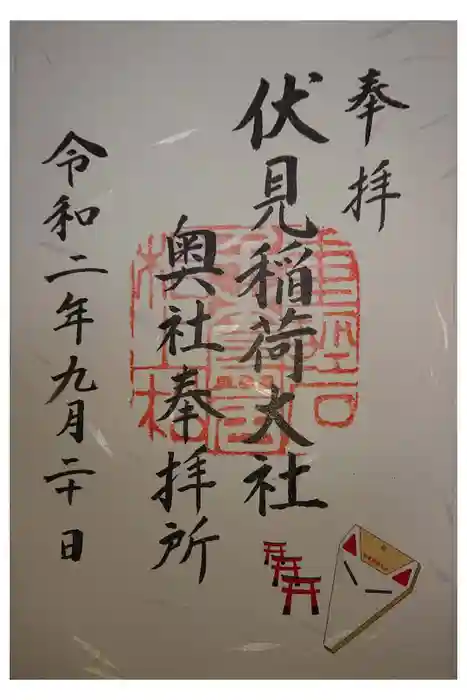 奉拝
伏見稲荷大社
奥社奉拝所
令和二年九月二十日